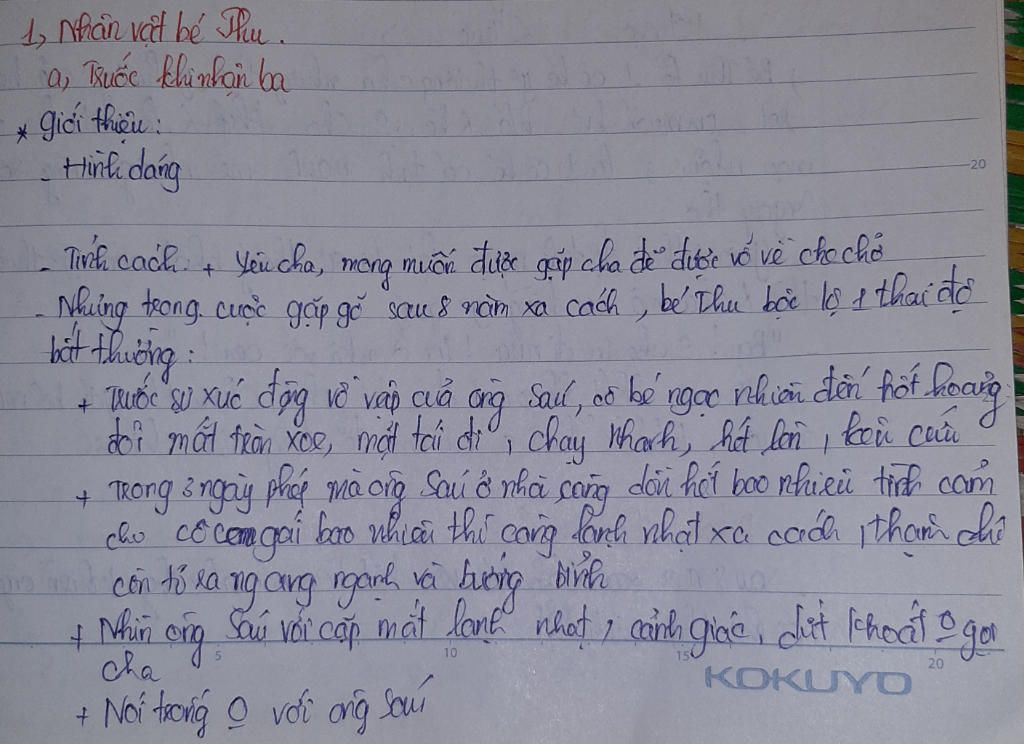 1, Nhân vật bé Thu.
a, Trước khi nhận ba
* Giới thiệu:
- Hình dáng
20
- Tính cách. + yêu cha, mong muốn được gặp cha để được vỗ về che chở
- Nhưng trong cuộc gặp gỡ sau 8 năm xa cách, bé Thu bộc lộ 1 thái độ
bất thường:
+ Trước sự xúc động vồ vập của ông Sáu, cô bé ngạc nhiên đến hốt hoảng:
đôi mắt tròn xoe, mặt tái đi, chạy nhanh, hét lên, kêu cứu
+ Trong 3 ngày phép mà ông Sáu ở nhà càng dồn hết bao nhiêu tình cảm
cho cô con gái bao nhiêu thì càng lạnh nhạt xa cách, thậm chí
còn tỏ ra ngang ngạnh và bướng bỉnh
+ Nhìn ông Sáu với cặp mắt lạnh nhạt, cảnh giác, dứt khoát o gọi
cha
5 10 15 20
KOKUYO
+ Nói trống o với ông Sáu